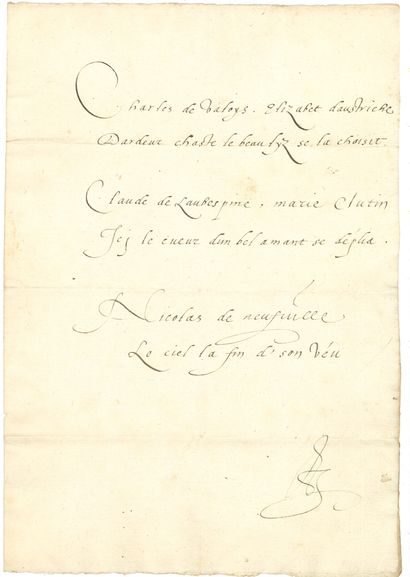 Charles de Valoys. Elizabet daustriche
Dardeur chaste le beau lyz se la choisit
Claude de Laubespine. marie Clutin
Icj le cueur dun bel amant se deplia.
Nicolas de neufuille
Le ciel la fin d' son Véu